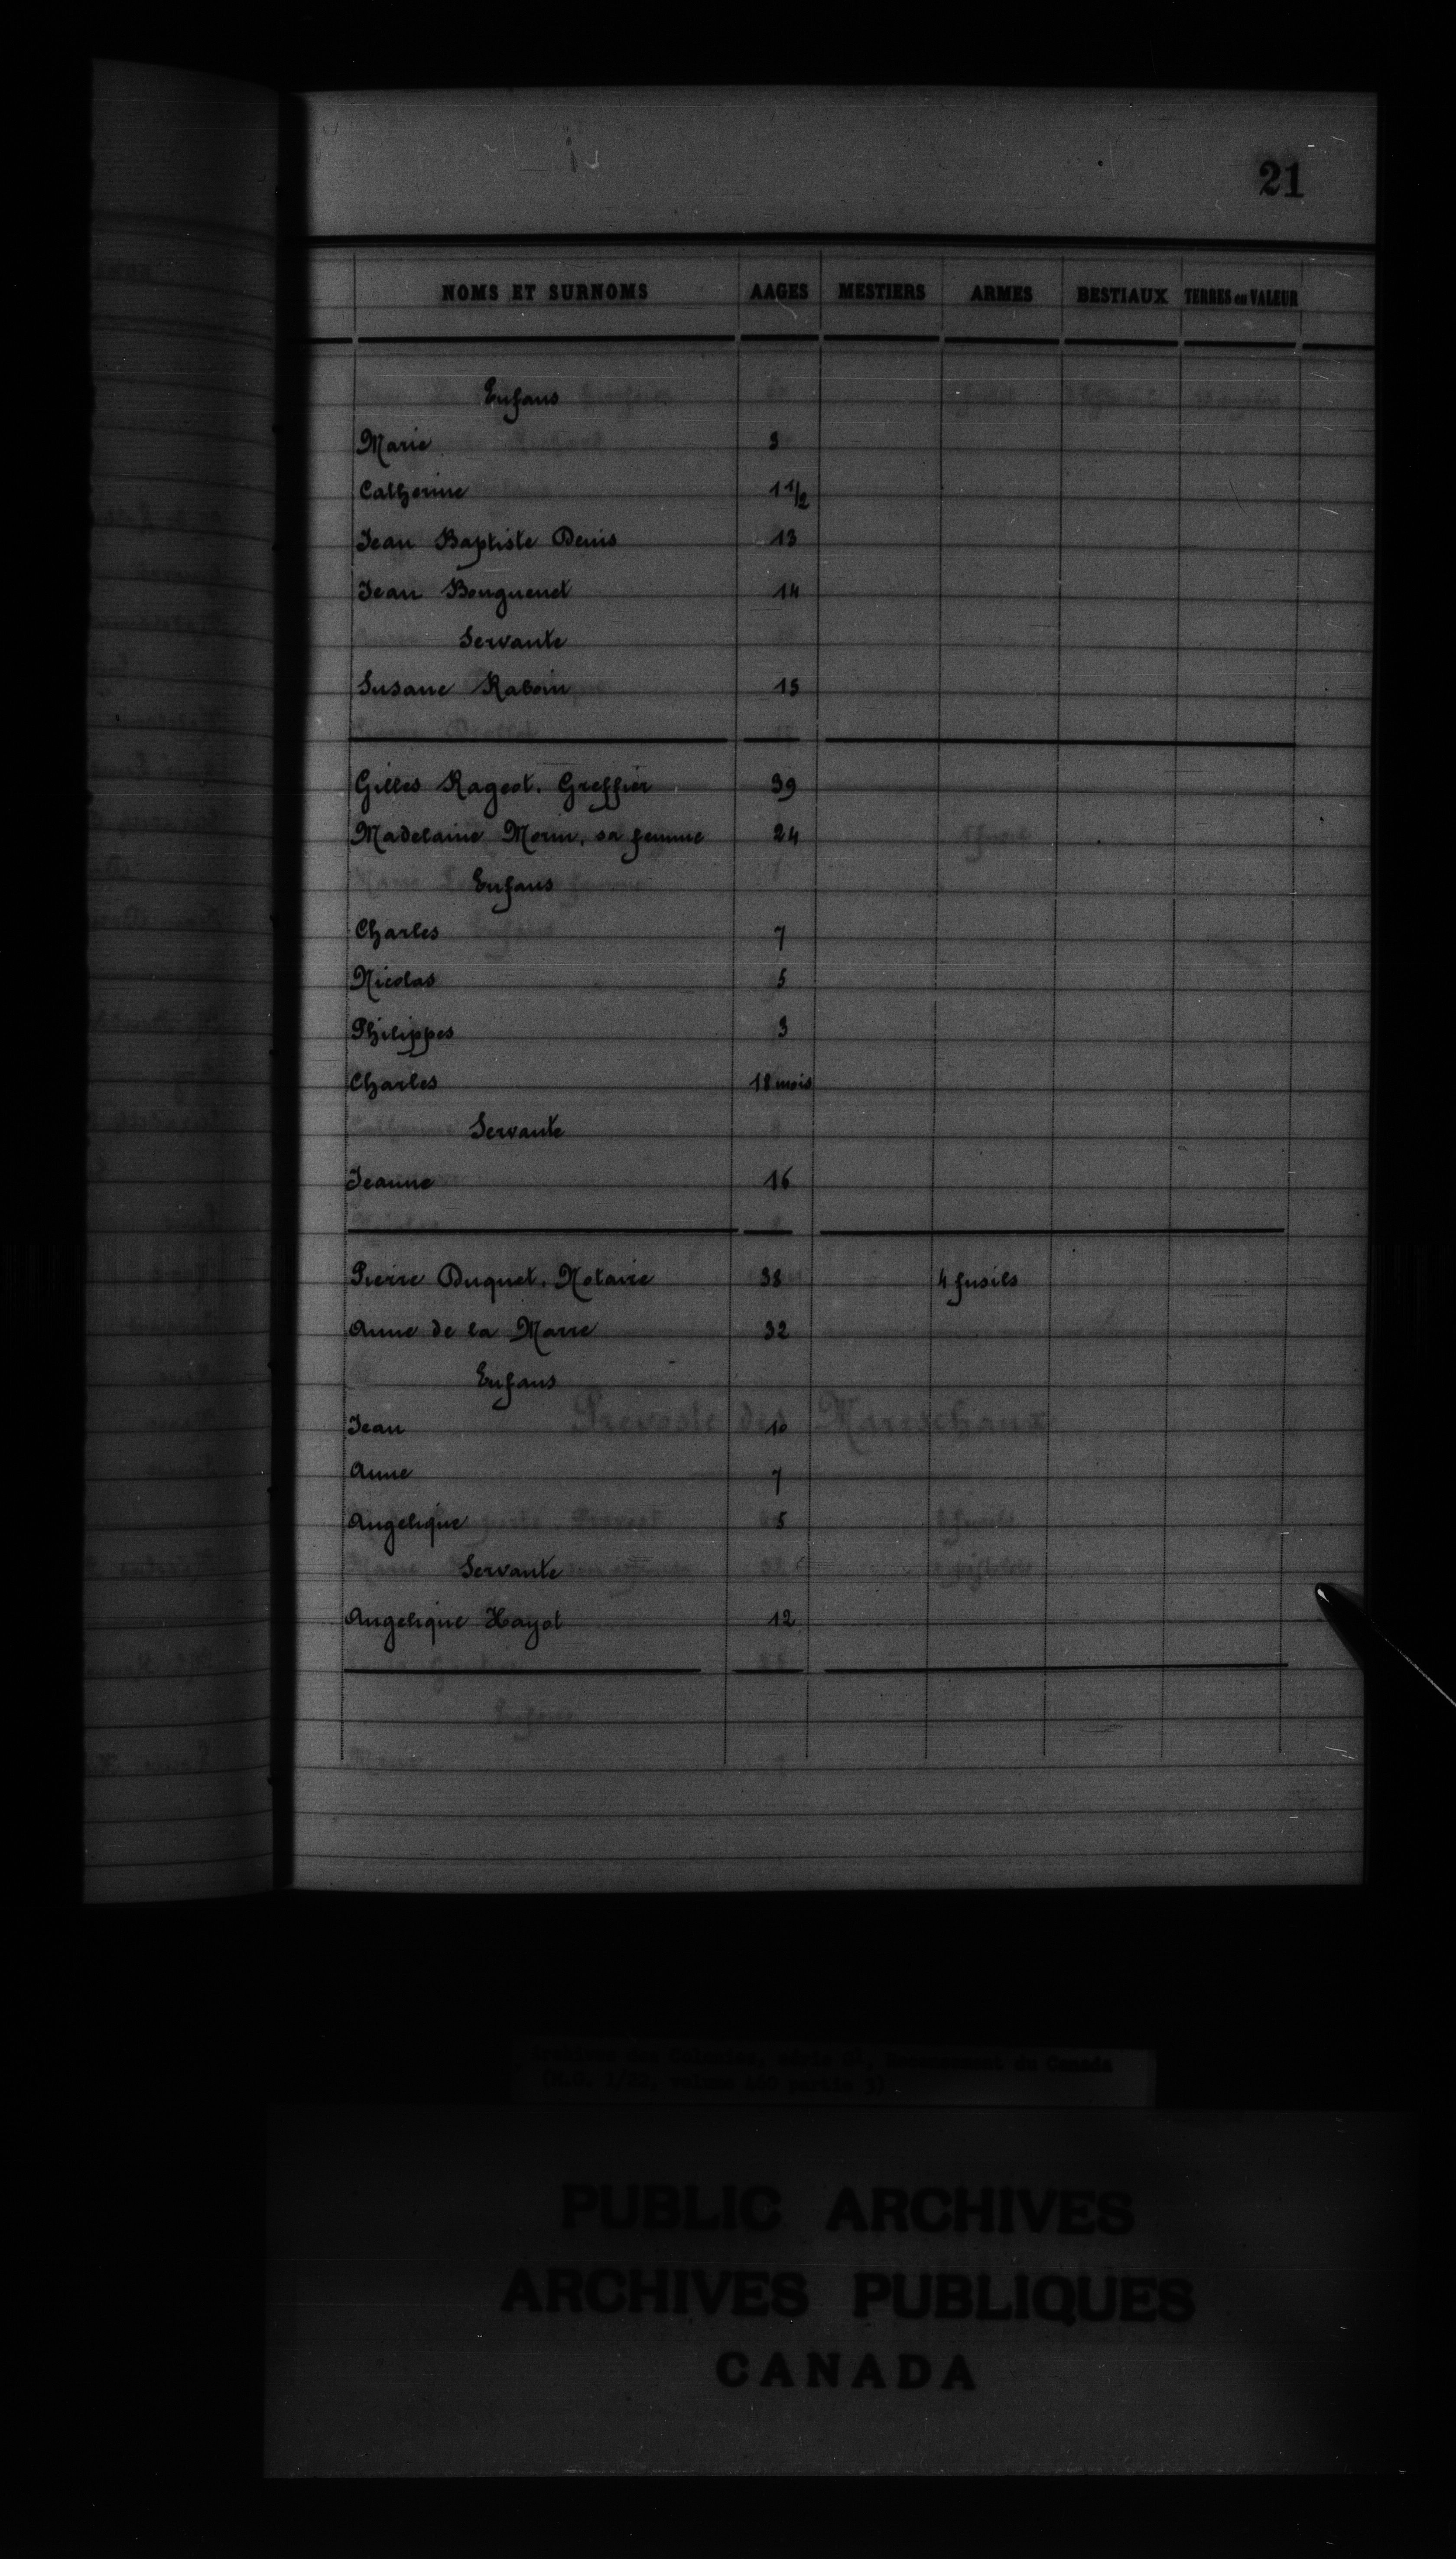 21
NOMS ET SURNOMS AAGES MESTIERS ARMES BESTIAUX TERRES en VALEUR
Enfans
Marie 3
Catherine 1 1/2
Jean Baptiste Denis 13
Jean Bouguenet 14
Servante
Susane Raboin 15
Gilles Rageot, Greffier 39
Madelaine Morin, sa femme 24
Enfans
Charles 7
Nicolas 5
Philippes 3
Charles 18 mois
Servante
Jeanne 16
Pierre Duquet, Notaire 38 4 fusils
Anne de la Marre 32
Enfans
Jean 10
Anne 7
Angelique 5
Servante
Angelique Hayot 12
Archives des Colonies, série G1, Recensement du Canada
PUBLIC ARCHIVES
ARCHIVES PUBLIQUES
CANADA